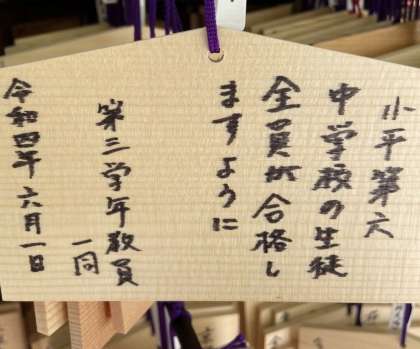 小平第六
中学校の生徒
全員が合格し
ますように
第三学年教員
一同
令和四年六月一日